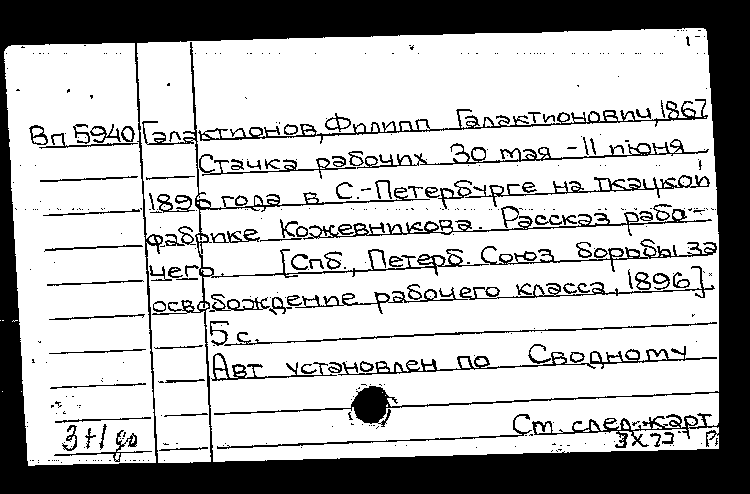 1
Вп 5940 Галактионов, Филипп Галактионович, 1867
Стачка рабочих 30 мая - 11 июня
1896 года в С.-Петербурге на ткацкой
фабрике Кожевникова. Рассказ рабо-
чего. [Спб., Петерб. Союз борьбы за
освобождение рабочего класса, 1896].
5 с.
Авт установлен по Сводному
См. след. карт
3+1 до